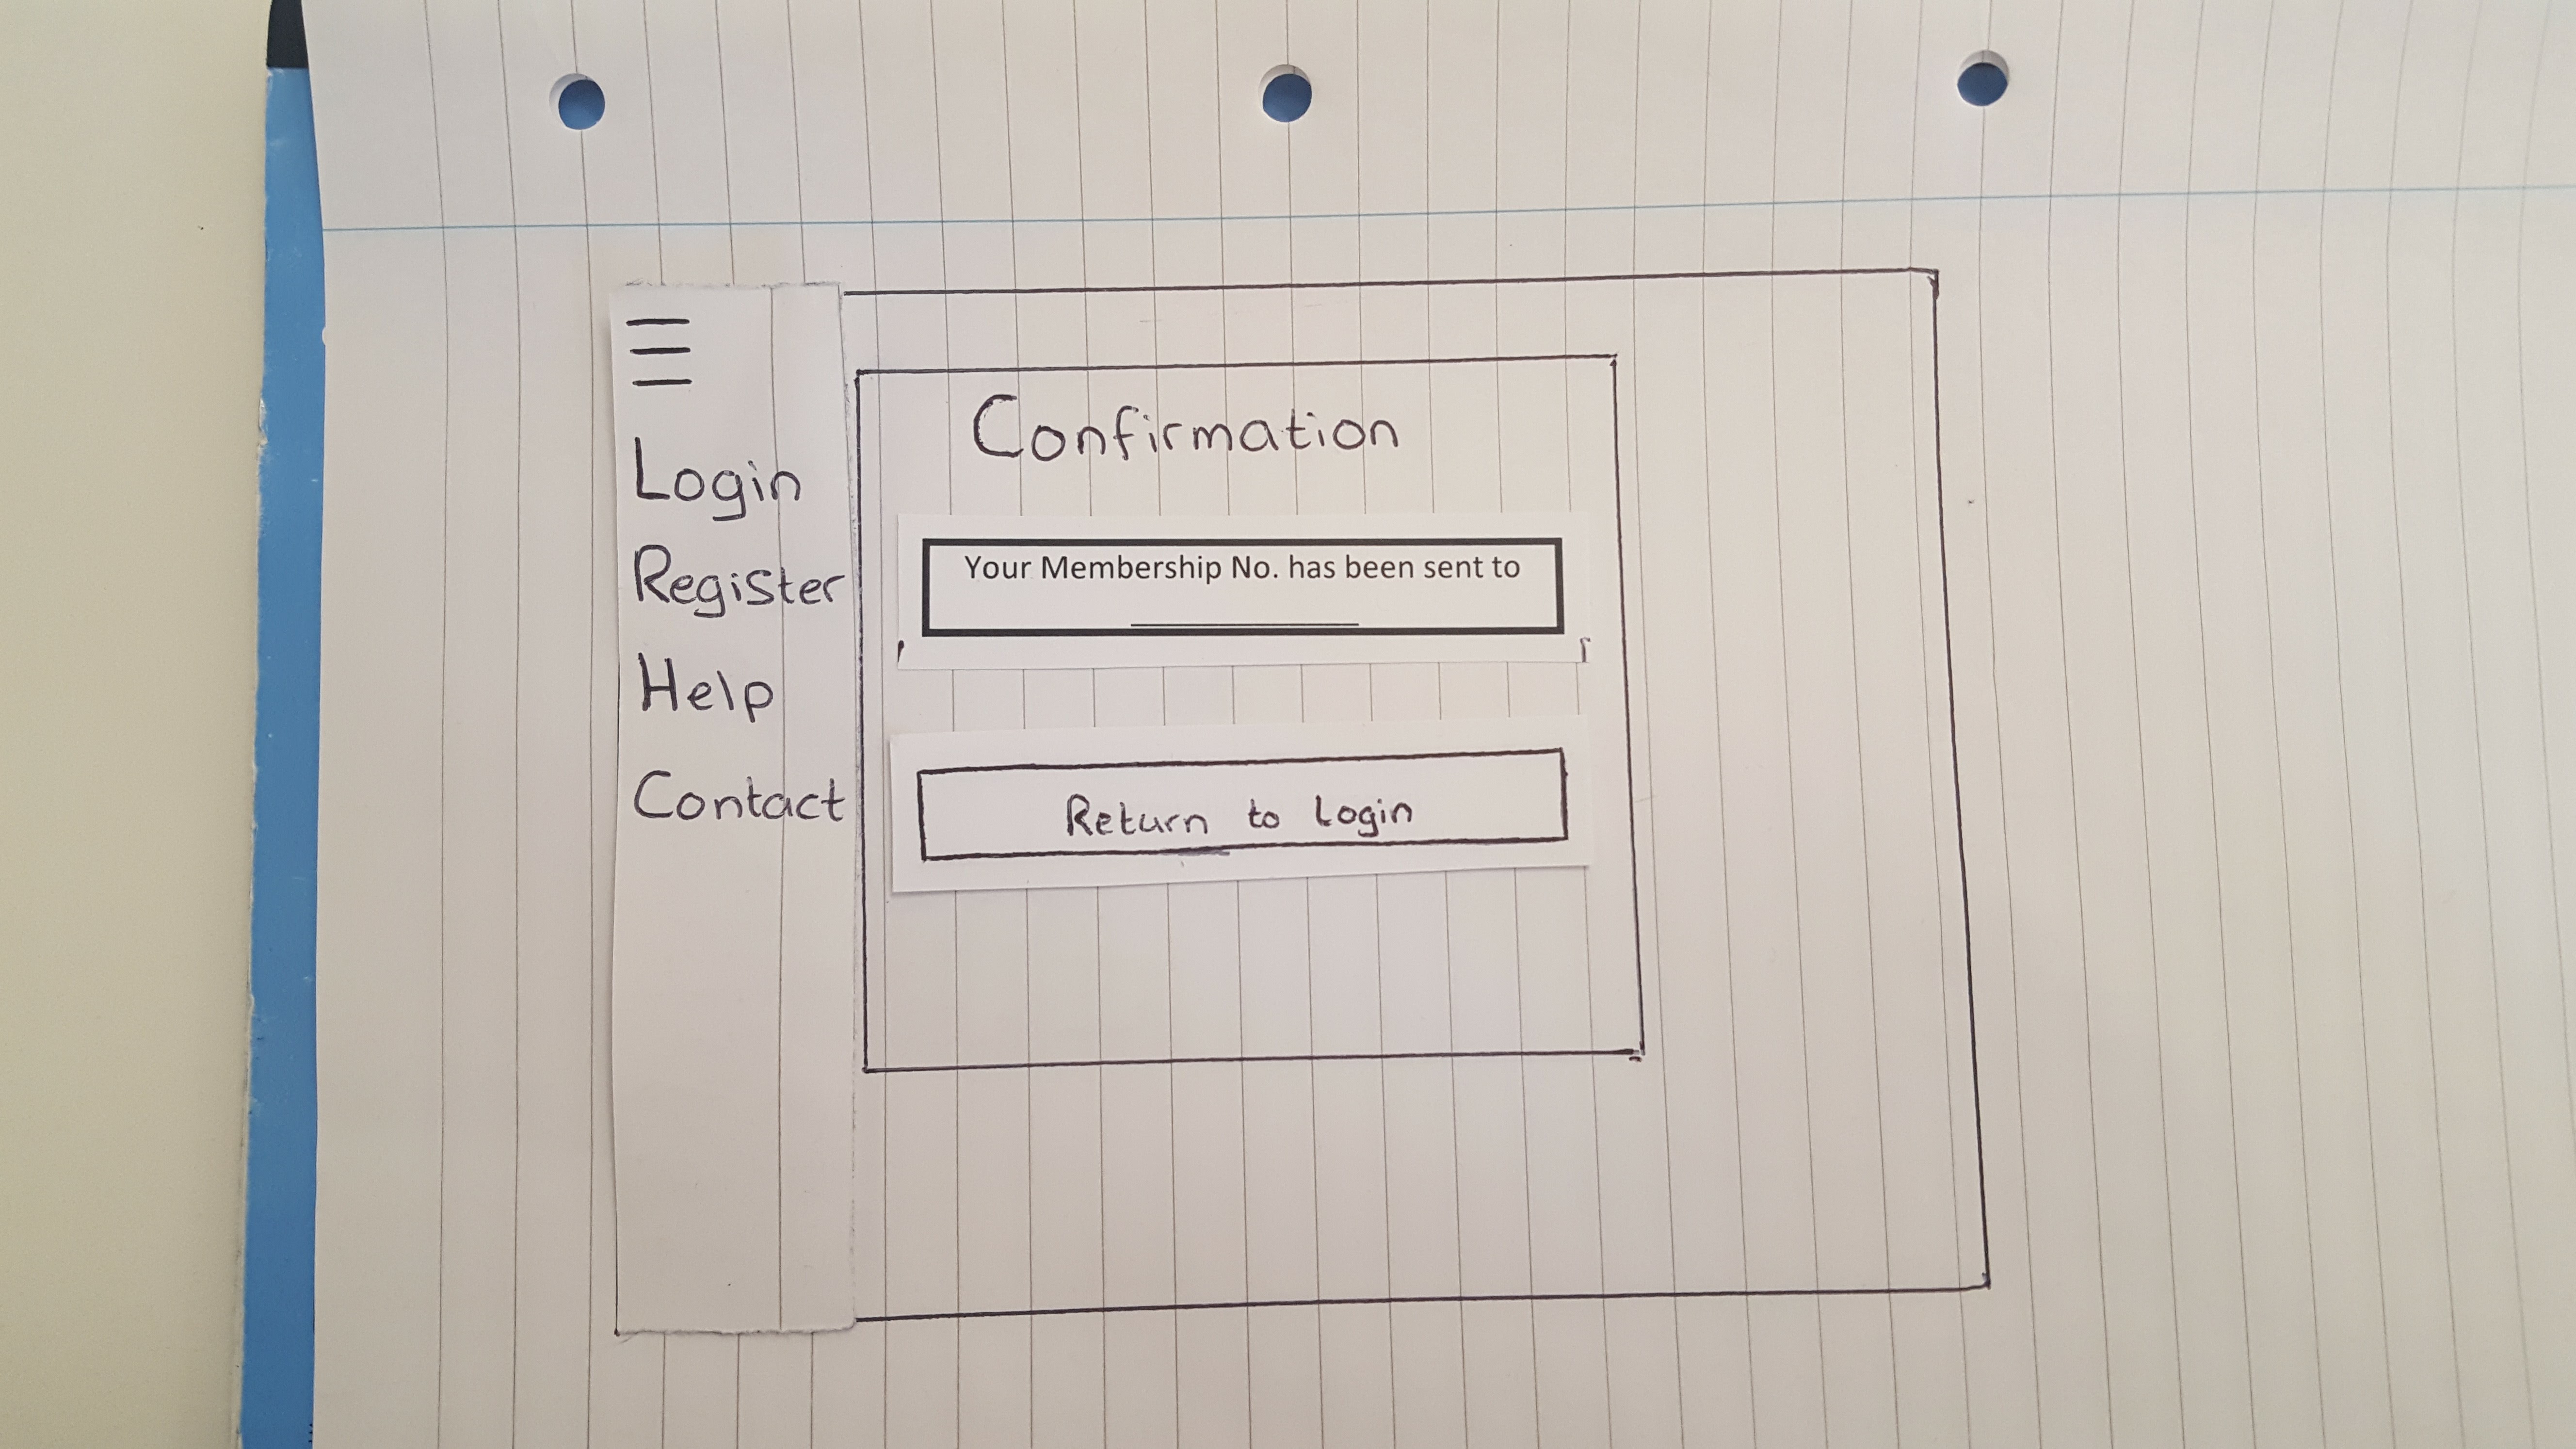 Login
Register
Help
Contact
Confirmation
Your Membership No. has been sent to
____________
Return to Login